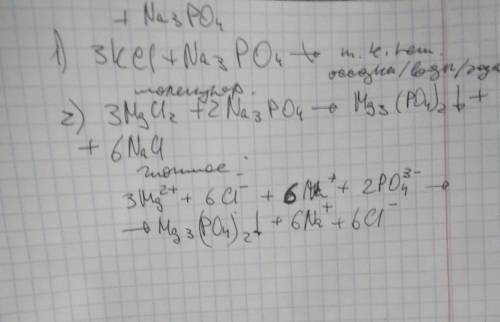 + Na₃PO₄
1) 3KCl + Na₃PO₄ ↛ т.к. нет
осадка/воды/газа
молекуляр.
2) 3MgCl₂ + 2Na₃PO₄ → Mg₃(PO₄)₂↓ +
+ 6NaCl
ионное:
3Mg²⁺ + 6Cl⁻ + 6Na⁺ + 2PO₄³⁻ →
→ Mg₃(PO₄)₂↓ + 6Na⁺ + 6Cl⁻